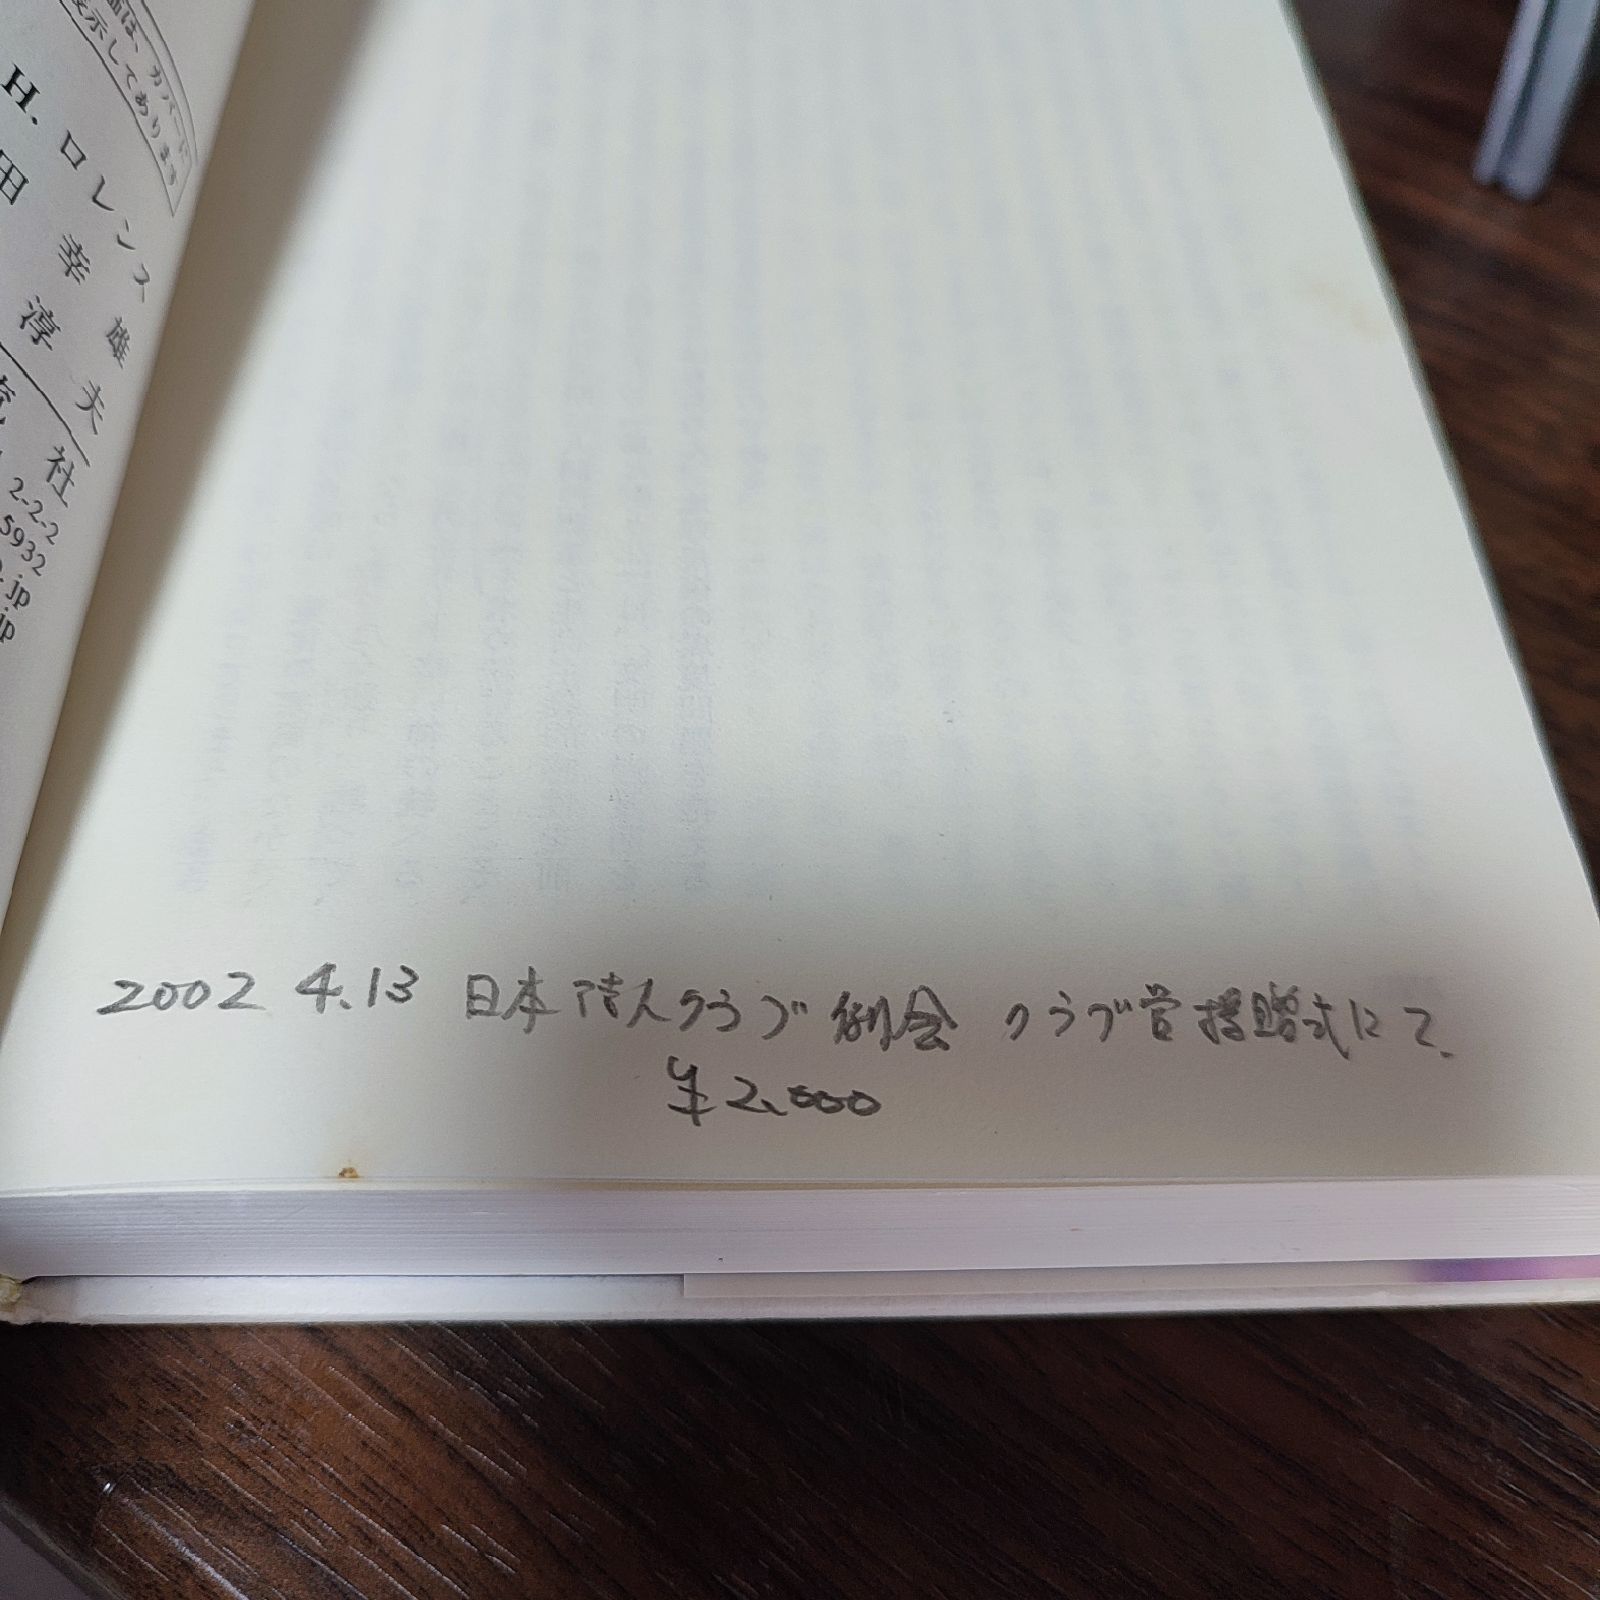 は、カバーに
表示してあります
H. ロレンス
田 幸雄
淳夫
社
2-2-2
5932
.jp
.jp
2002 4.13 日本詩人クラブ例会 クラブ賞授贈式にて、
¥2,000